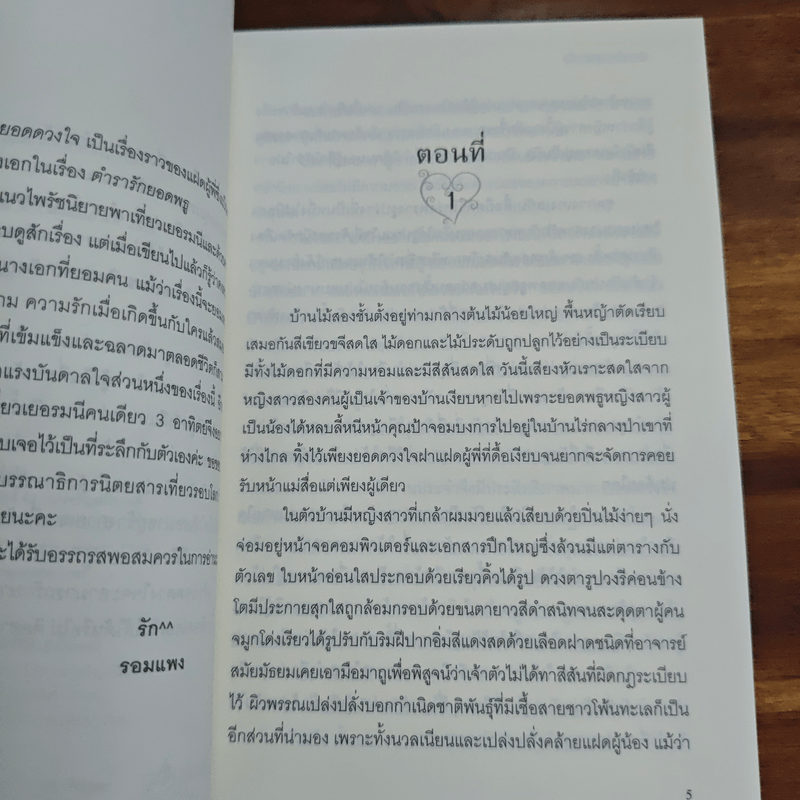 ยอดดวงใจ เป็นเรื่องราวของแฝดผู้พี่ซึ่งเป็น
งเอกในเรื่อง ตำรารักยอดพธู
แนวไพรัชนิยายพาเที่ยวเยอรมนีและ
บดูสักเรื่อง แต่เมื่อเขียนไปแล้วก็รู้ว่า
นางเอกที่ยอมคน แม้ว่าเรื่องนี้จะ
าม ความรักเมื่อเกิดขึ้นกับใครแล้ว
ที่เข้มแข็งและฉลาดมาตลอดชีวิต
แรงบันดาลใจส่วนหนึ่งของเรื่องนี้
ยวเยอรมนีคนเดียว 3 อาทิตย์จึง
บเจอไว้เป็นที่ระลึกกับตัวเองค่ะ
บรรณาธิการนิตยสารเที่ยวรอบโลก
ยนะคะ
ะได้รับอรรถรสพอสมควรในการอ่าน
รัก^^
รอมแพง
ตอนที่
1
บ้านไม้สองชั้นตั้งอยู่ท่ามกลางต้นไม้น้อยใหญ่ พื้นหญ้าตัดเรียบ
เสมอกันสีเขียวขจีสดใส ไม้ดอกและไม้ประดับถูกปลูกไว้อย่างเป็นระเบียบ
มีทั้งไม้ดอกที่มีความหอมและมีสีสันสดใส วันนี้เสียงหัวเราะสดใสจาก
หญิงสาวสองคนผู้เป็นเจ้าของบ้านเงียบหายไปเพราะยอดพธูหญิงสาวผู้
เป็นน้องได้หลบลี้หนีหน้าคุณป้าจอมบงการไปอยู่ในบ้านไร่กลางป่าเขาที่
ห่างไกล ทิ้งไว้เพียงยอดดวงใจฝาแฝดผู้พี่ที่ดื้อเงียบจนยากจะจัดการคอย
รับหน้าแม่สื่อแต่เพียงผู้เดียว
ในตัวบ้านมีหญิงสาวที่เกล้าผมมวยแล้วเสียบด้วยปิ่นไม้ง่ายๆ นั่ง
จ่อมอยู่หน้าจอคอมพิวเตอร์และเอกสารปึกใหญ่ซึ่งล้วนมีแต่ตารางกับ
ตัวเลข ใบหน้าอ่อนใสประกอบด้วยเรียวคิ้วได้รูป ดวงตารูปวงรีค่อนข้าง
โตมีประกายสุกใสถูกล้อมกรอบด้วยขนตายาวสีดำสนิทจนสะดุดตาผู้คน
จมูกโด่งเรียวได้รูปรับกับริมฝีปากอิ่มสีแดงสดด้วยเลือดฝาดชนิดที่อาจารย์
สมัยมัธยมเคยเอามือมาถูเพื่อพิสูจน์ว่าเจ้าตัวไม่ได้ทาสีสันที่ผิดกฎระเบียบ
ไว้ ผิวพรรณเปล่งปลั่งบอกกำเนิดชาติพันธุ์ที่มีเชื้อสายชาวโพ้นทะเลก็เป็น
อีกส่วนที่น่ามอง เพราะทั้งนวลเนียนและเปล่งปลั่งคล้ายแฝดผู้น้อง แม้ว่า
5